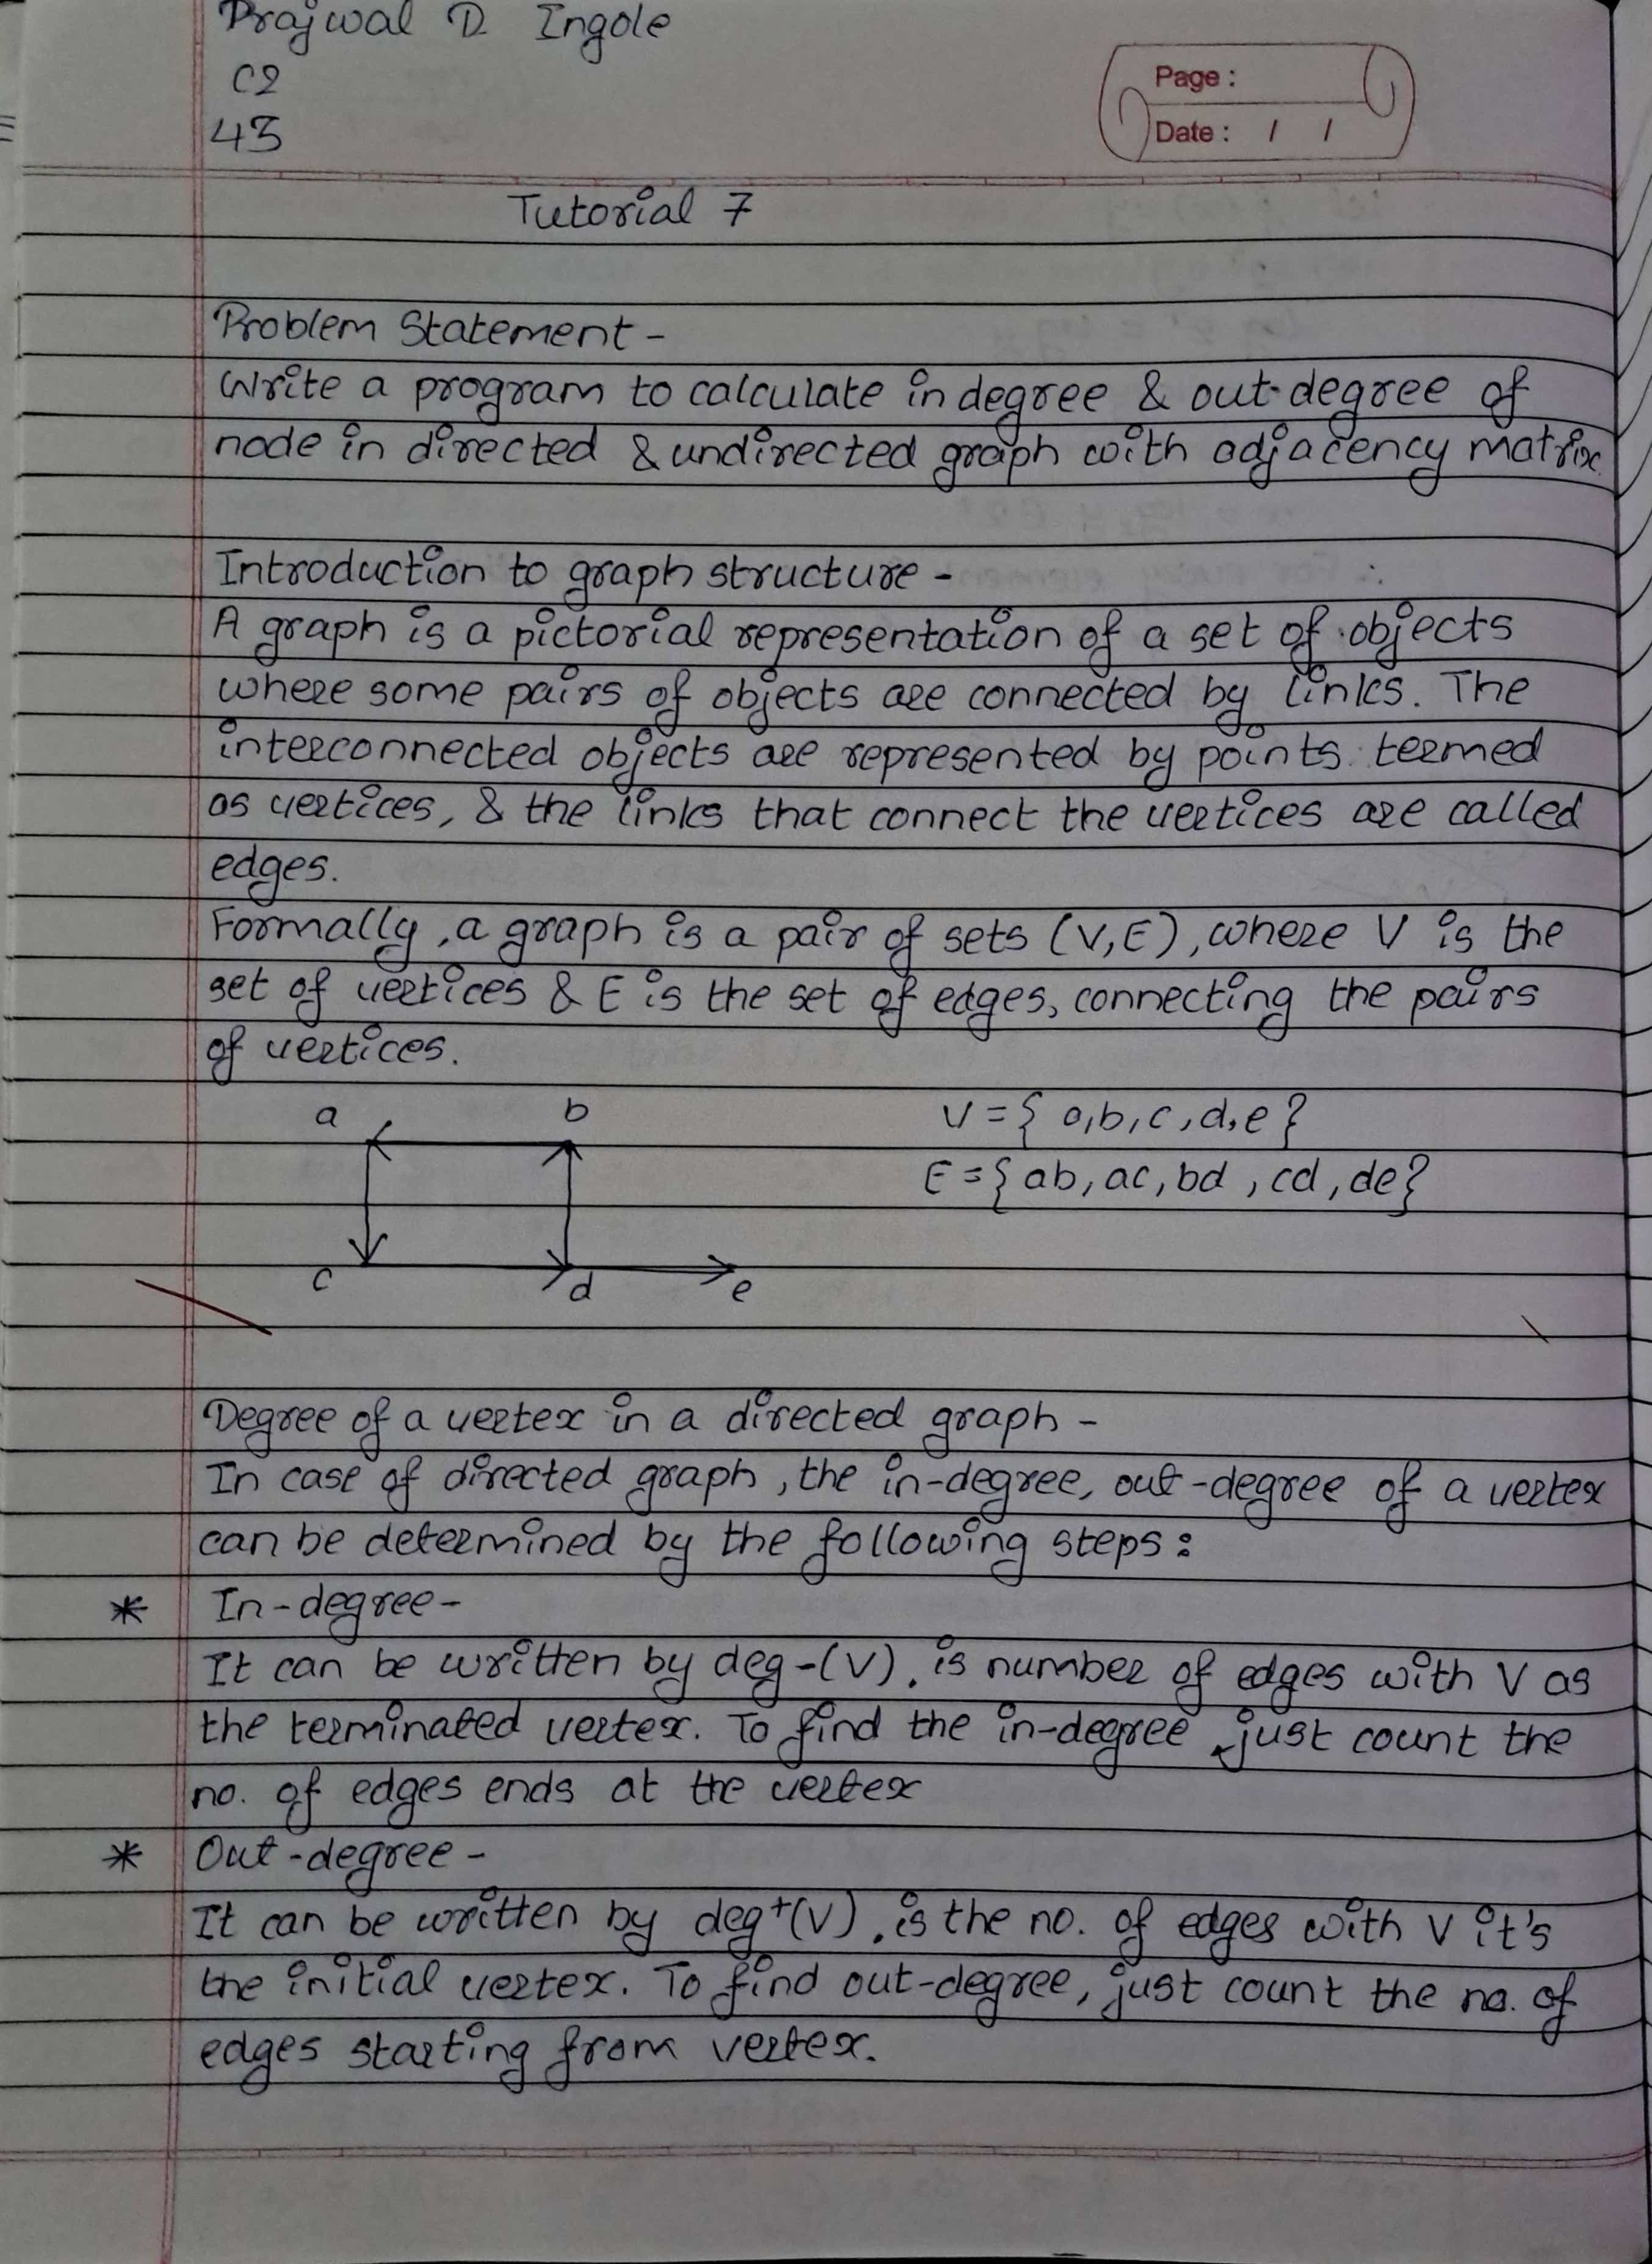 Prajwal D. Ingole
C2
43
Page :
Date : / /
Tutorial 7
Problem Statement -
Write a program to calculate in degree & out-degree of
node in directed & undirected graph with adjacency matrix.
Introduction to graph structure -
A graph is a pictorial representation of a set of objects
where some pairs of objects are connected by links. The
interconnected objects are represented by points termed
as vertices, & the links that connect the vertices are called
edges.
Formally, a graph is a pair of sets (V,E), where V is the
set of vertices & E is the set of edges, connecting the pairs
of vertices.
a b
V = { a,b,c,d,e }
E = { ab, ac, bd, cd, de }
c d e
Degree of a vertex in a directed graph -
In case of directed graph, the in-degree, out-degree of a vertex
can be determined by the following steps :
* In-degree -
It can be written by deg-(V), is number of edges with V as
the terminated vertex. To find the in-degree, just count the
no. of edges ends at the vertex
* Out-degree -
It can be written by deg+(V), is the no. of edges with V it's
the initial vertex. To find out-degree, just count the no. of
edges starting from vertex.